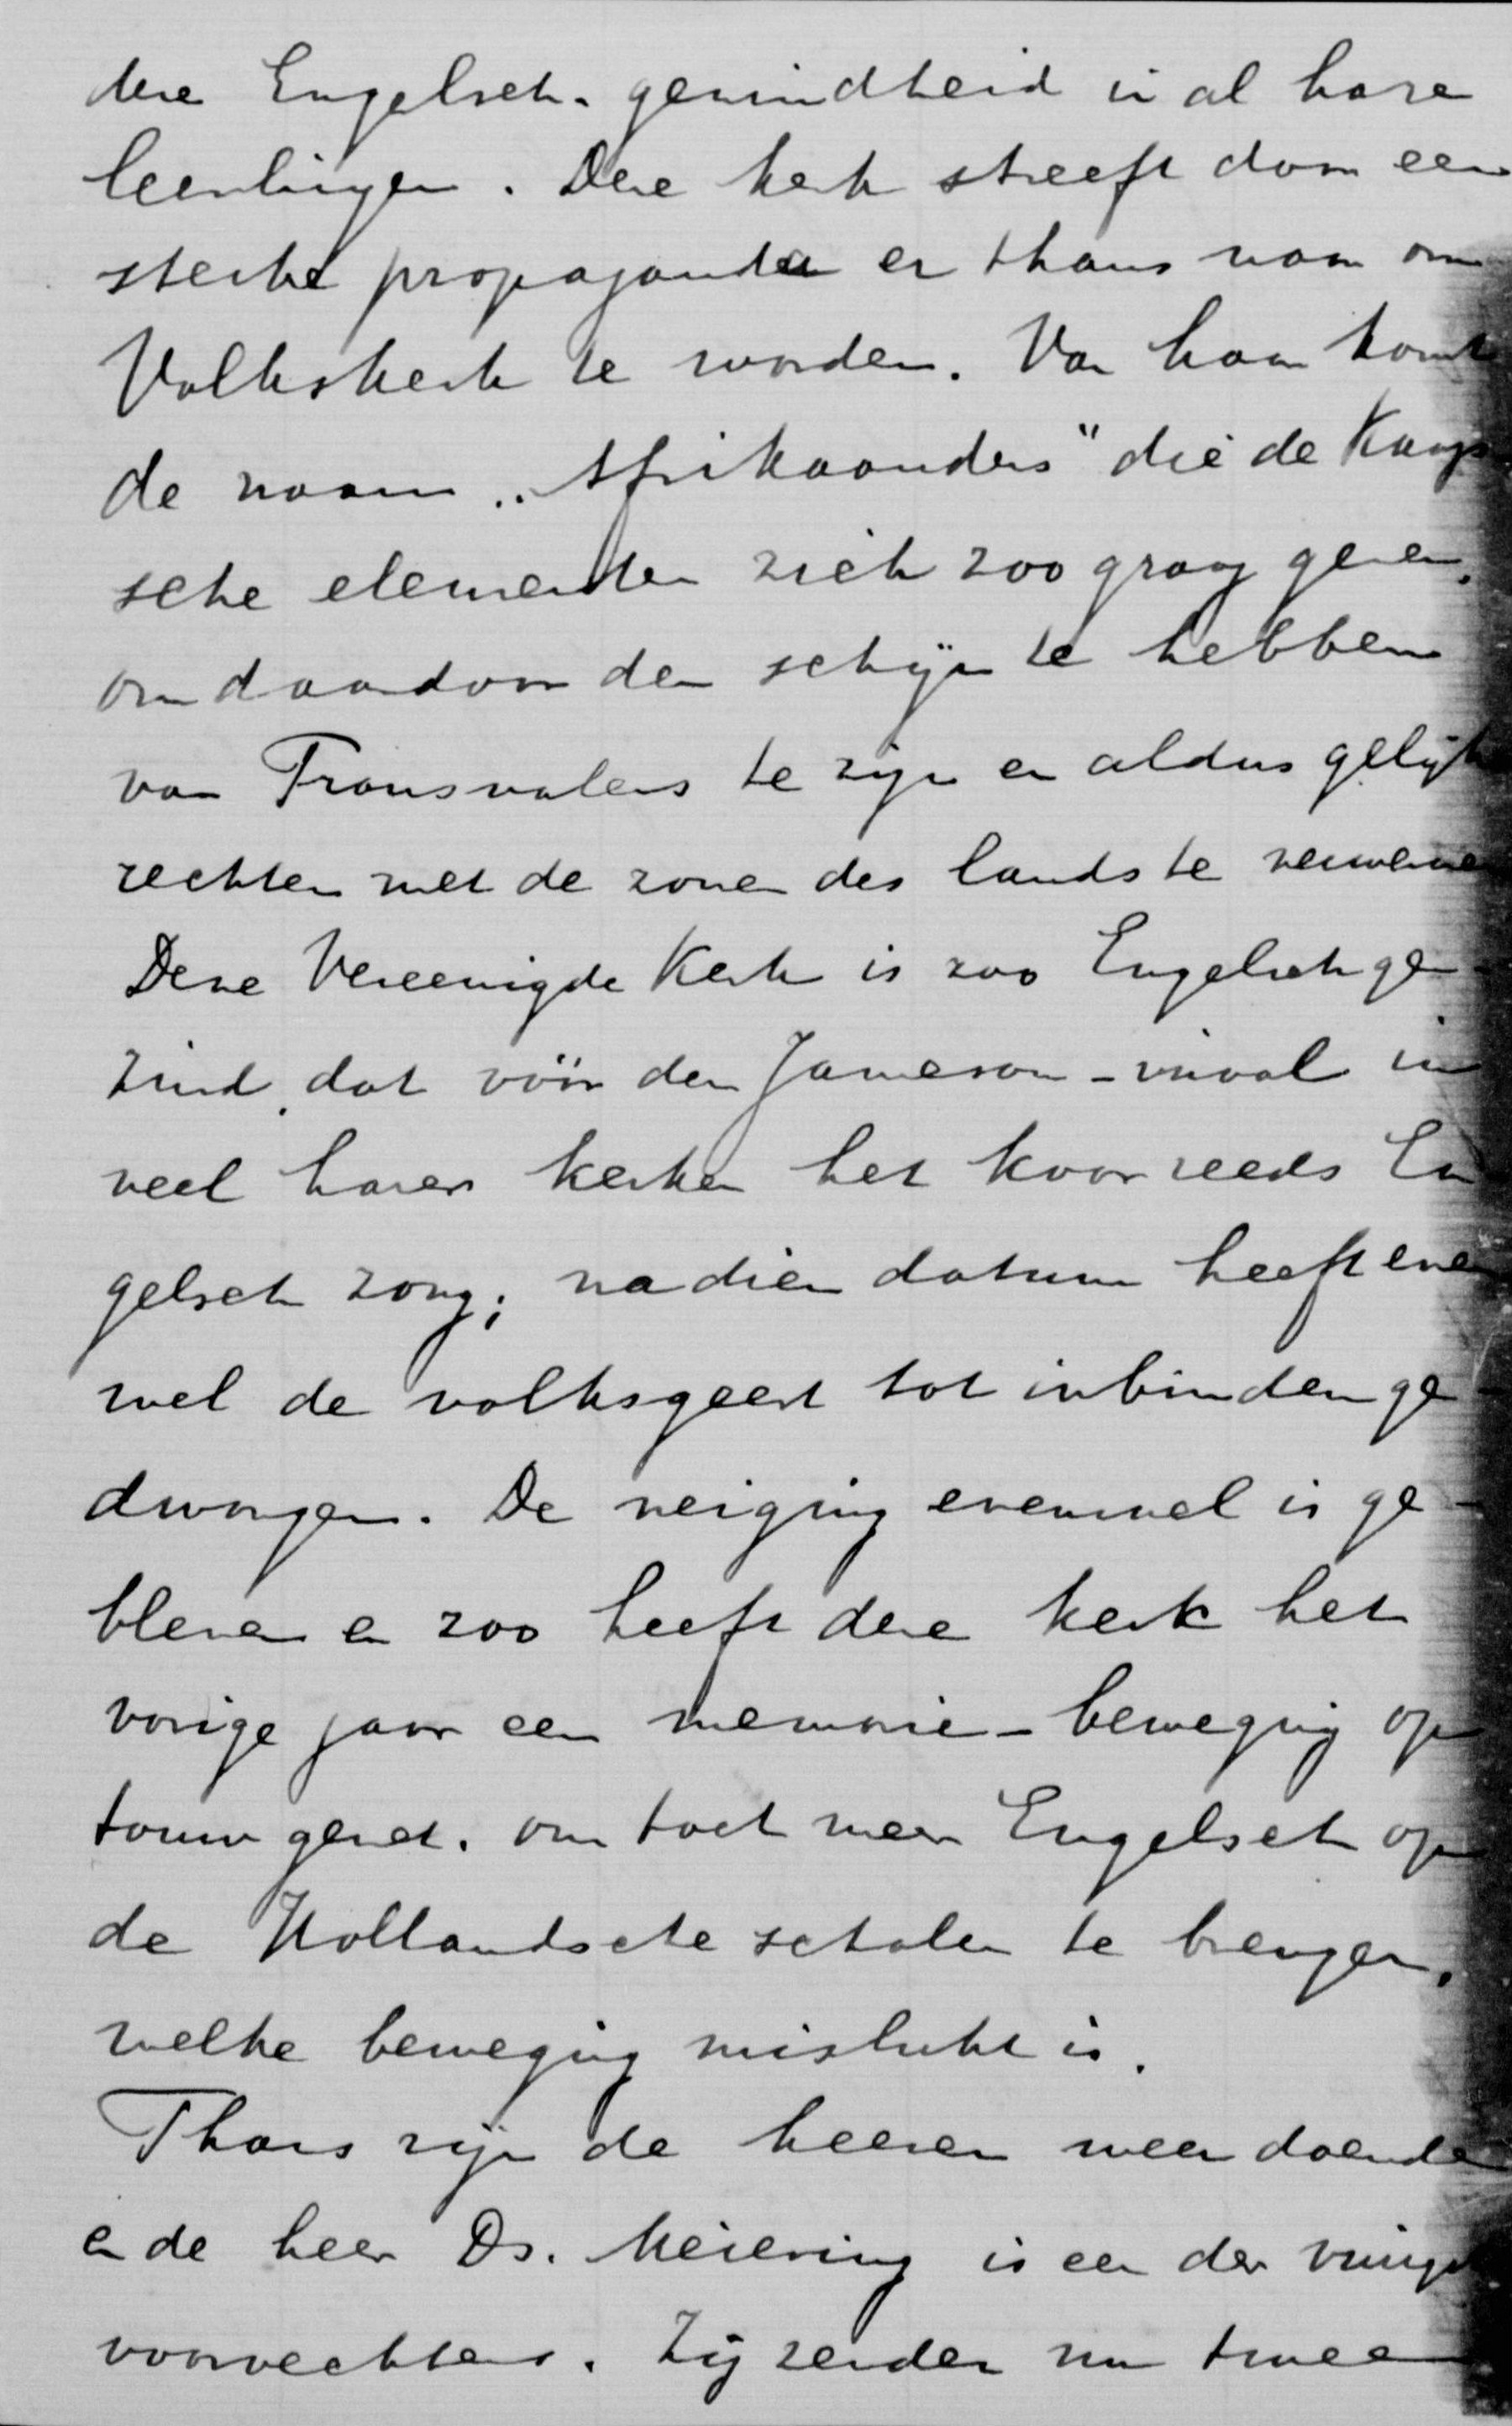 deze Engelsch-gezindheid in al hare
leerlingen. Deze kerk streeft door een
sterke propaganda er thans naar om
Volkskerk te worden. Van haar komt
de naam „Afrikaanders" die de Kaap-
sche elementen zich zoo graag geven,
om daardoor den schijn te hebben
van Transvalers te zijn en aldus gelijke
rechten met de zonen des lands te verwerven
Deze Vereenigde Kerk is zoo Engelsch ge-
zind, dat vóór den Jameson-inval in
veel harer kerken het koor reeds En
gelsch zong; na dien datum heeft even
wel de volksgeest tot inbinden ge-
dwongen. De neiging evenwel is ge-
bleven en zoo heeft deze kerk het
vorige jaar een memorie-beweging op
touw gezet, om toch meer Engelsch op
de Hollandsche scholen te brengen,
welke beweging mislukt is.
Thans zijn de heeren weer doende
en de heer Ds. Meiering is een der vurige
voorvechters. Zij zenden nu twee